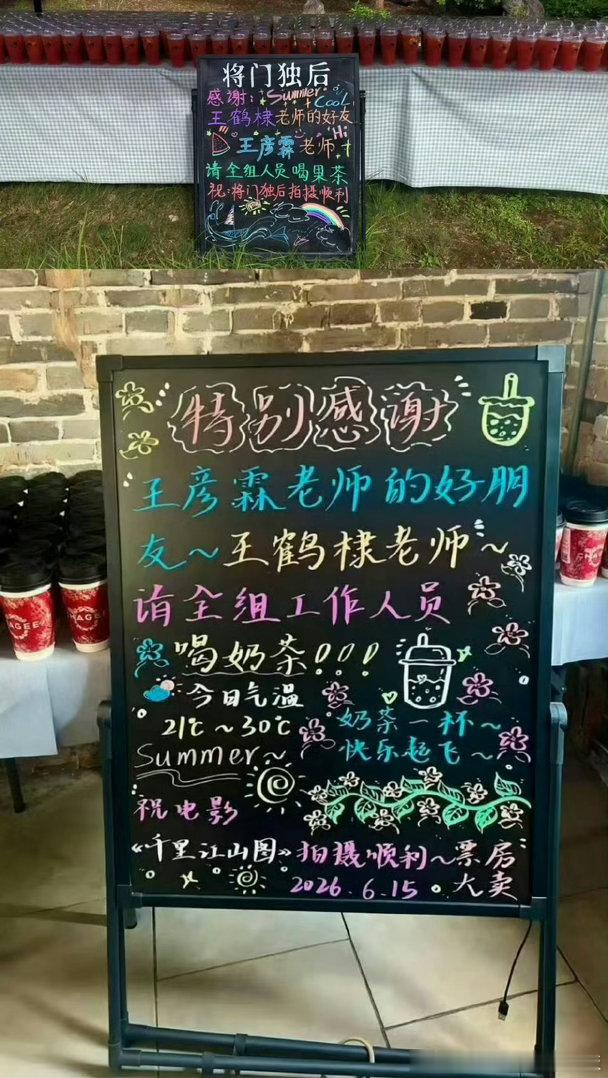 将门独后
感谢：Summer
Cool
王鹤棣老师的好友
Hi
王彦霖老师
请全组人员喝果茶
祝：将门独后拍摄顺利
特别感谢
王彦霖老师的好朋
友～王鹤棣老师～
请全组工作人员
喝奶茶！！！
今日气温
21℃～30℃
Summer～
奶茶一杯～
快乐起飞～
祝电影
《千里江山图》拍摄顺利～票房
大卖
2026.6.15